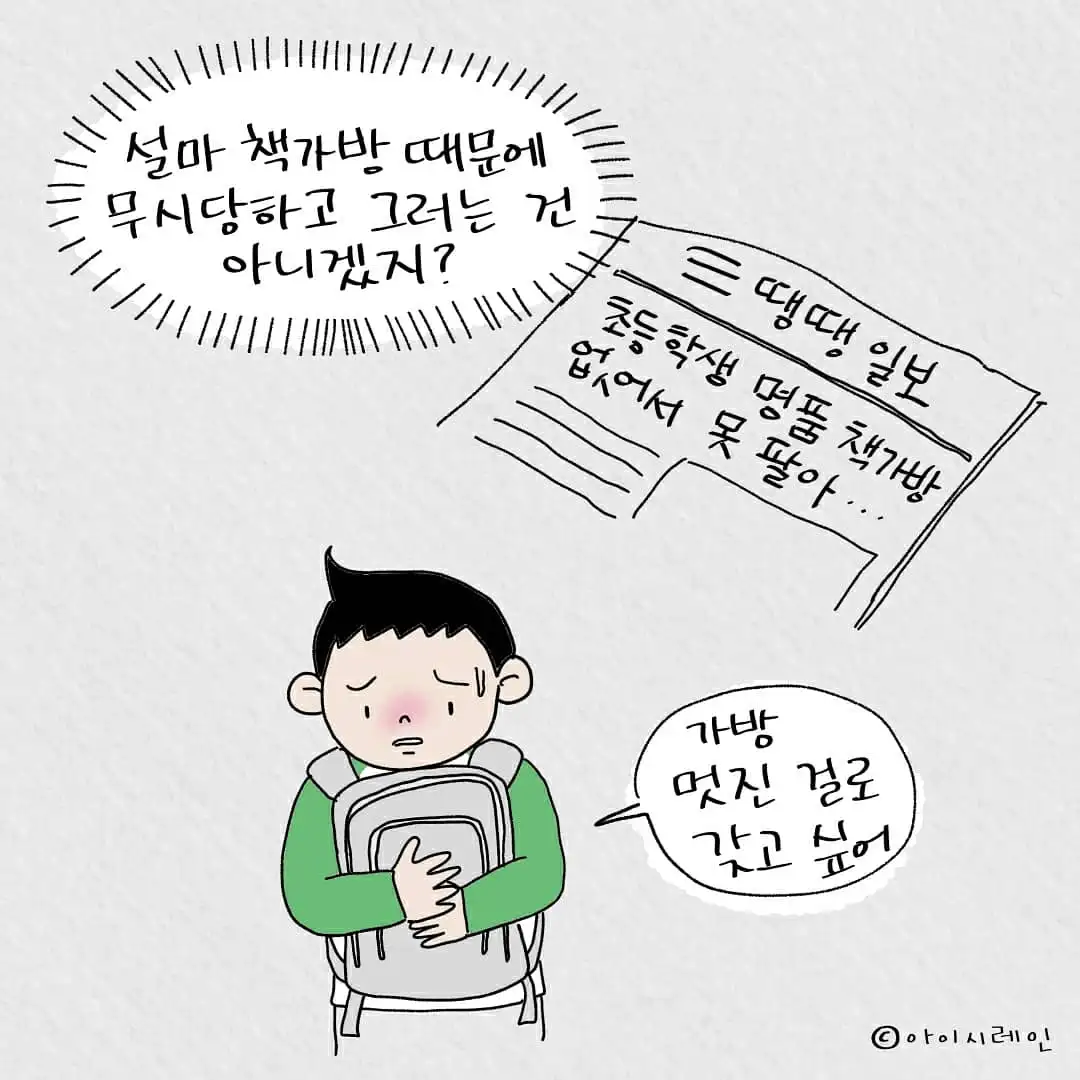 설마 책가방 때문에
무시당하고 그러는 건
아니겠지?
땡땡 일보
초등학생 명품 책가방
없어서 못 팔아...
가방
멋진 걸로
갖고 싶어
©아이시레인